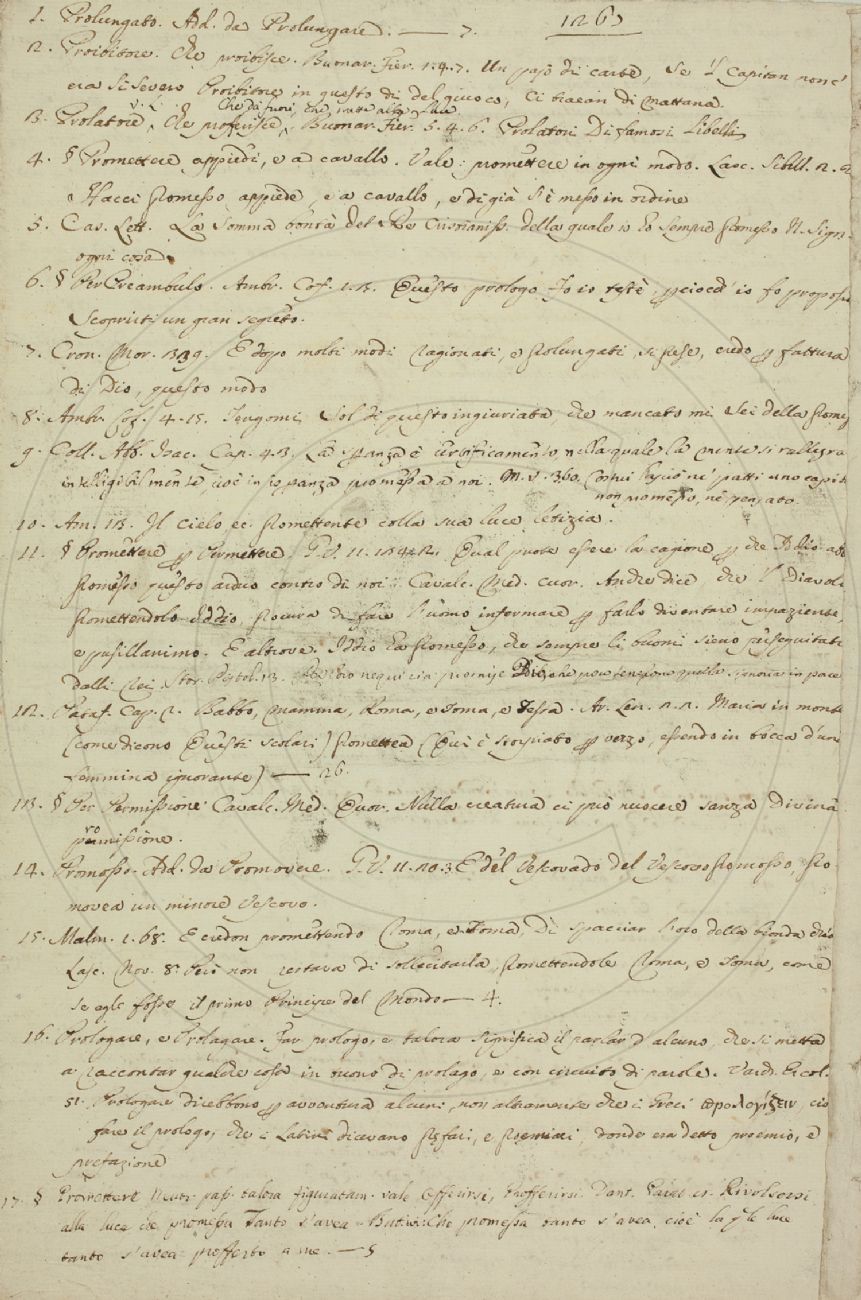 1. Prolungato. Add. da Prolungare. — 7. 1269
2. Proibitore. Che proibisce. Buonar. Fier. 1. 4. 7. Un pajo di carte, Se 'l Capitan non c'
era sì severo Proibitore in questo dì del giuoco, Ci traean di mattana.
Che dà fuori, che mette alla luce
3. Prolatore, Che proferisce, Buonar. Fier. 5. 4. 6. Prolatori Di famosi Libelli
4. § Promettere appiedi, e a cavallo. Vale: promettere in ogni modo. Lasc. Sibill. 2. 2
Hacci promesso appiede, e a cavallo, e di già s'è messo in ordine
5. Cas. Lett. La Somma bontà del Re Cristianiss. della quale io ho sempre promesso N. Sign.
ogni cosa
6. § Per Preambulo. Ambr. Cof. 1. 3. Questo prologo Fo io testè, perciocch' io fo proposi
Scoprirti un gran segreto.
7. Cron. Mor. 339. E dopo molti modi ragionati, e prolungati, si prese, credo per fattura
di Dio, questo modo
8. Ambr. Cof. 4. 15. Tengomi Sol di questo ingiuriata, che mancato mi Sei della prom
9. Coll. Abb. Isac. Cap. 43. La speranza è certificamento, nella quale la mente si rallegra
intelligibilmente, cioè in isperanza promessa a noi. M. V. 3. 60. Costui lasciò ne' patti uno capit.
non promesso, nè pensato.
10. Am. 13. Il cielo, ec. promettente colla sua luce letizia.
11. § Promettere per Permettere. G. V. 11. Qual puote essere la cagione, per che Iddio ab
promesso questo arduo contro di noi. Cavalc. Med. cuor. Anche dice, che 'l Diavol
promettendolo Iddio, procura di fare l'uomo infermare per farlo diventare impaziente,
e pusillanimo. E altrove. Iddio ha promesso, che sempre li buoni sieno perseguitati
dalli rei. Stor. Pistol. 13. nequizia promise Dio, che in pace
12. Pataf. Cap. 2. Babbo, mamma, Roma, e toma, e Tessa. Ar. Len. 2. 2. Maria in monte
(come dicono Questi scolari) promettea (Quì è storpiato per vezzo, essendo in bocca d'una
femmina ignorante) — 26.
113. § Per Permissione. Cavalc. Med. Cuor. Nulla creatura ci può nuocere sanza Divina
promissione.
14. Promosso. Add. da Promovere. G. V. 11. 20. 3 E del Vescovado del Vescovo promosso, pro-
movea un minore Vescovo.
15. Malm. 1. 68. E credon promettendo Roma, e Toma, Di spacciar l'oro della bionda chio
Lasc. Nov. 8. Però non restava di sollecitarla, promettendole Roma, e Toma, come
se egli fosse il primo Principe del Mondo — 4.
16. Prologare, e Prolagare. Far prologo, e talora significa il parlar d'alcuno, che si metta
a raccontar qualche cosa in tuono di prologo, e con circuito di parole. Varch. Ercol.
51. Prologare direbbono per avventura alcuni, non altramente che i Greci προλογίζειν, cio
fare il prologo, che i Latini dicevano prefari, e proemiari, donde era detto proemio, e
prefazione
17. § Promettere Neutr. pass. talora figuratam. vale Offerirsi, Profferirsi. Dant. Parad. 8. Rivolsersi
alla luce che promessa Tanto s'avea. Buti: Che promessa tanto s'avea, cioè la qle luce
tanto s'avea profferto a me. — 5